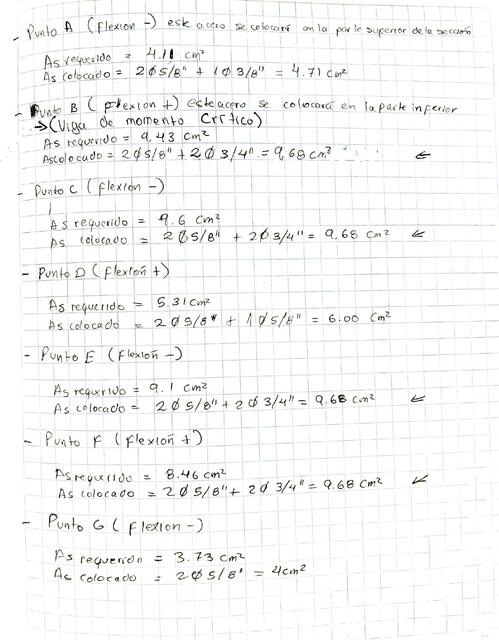 - Punto A (Flexion -) este acero se colocará en la parte superior de la sección
As requerido = 4.11 cm²
As colocado = 2 Ø 5/8" + 1 Ø 3/8" = 4.71 cm²
- Punto B (flexion +) este acero se colocará en la parte inferior
→ (Viga de momento Crítico)
As requerido = 9,43 cm²
As colocado = 2 Ø 5/8" + 2 Ø 3/4" = 9,68 cm² ←
- Punto C (flexion -)
As requerido = 9.6 cm²
As colocado = 2 Ø 5/8" + 2 Ø 3/4" = 9.68 cm² ←
- Punto D (flexion +)
As requerido = 5.31 cm²
As colocado = 2 Ø 5/8" + 1 Ø 5/8" = 6.00 cm²
- Punto E (flexion -)
As requerido = 9.1 cm²
As colocado = 2 Ø 5/8" + 2 Ø 3/4" = 9.68 cm² ←
- Punto F (flexion +)
As requerido = 8.46 cm²
As colocado = 2 Ø 5/8" + 2 Ø 3/4" = 9.68 cm² ←
- Punto G (flexion -)
As requerido = 3.73 cm²
As colocado = 2 Ø 5/8' = 4 cm²